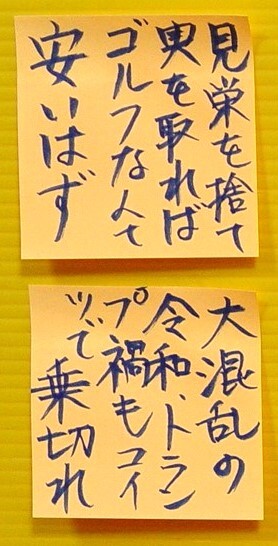 見栄を捨て
実を取れば
ゴルフなんて
安いはず
大混乱の
令和、トラン
プ禍もコイ
ツで乗切れ